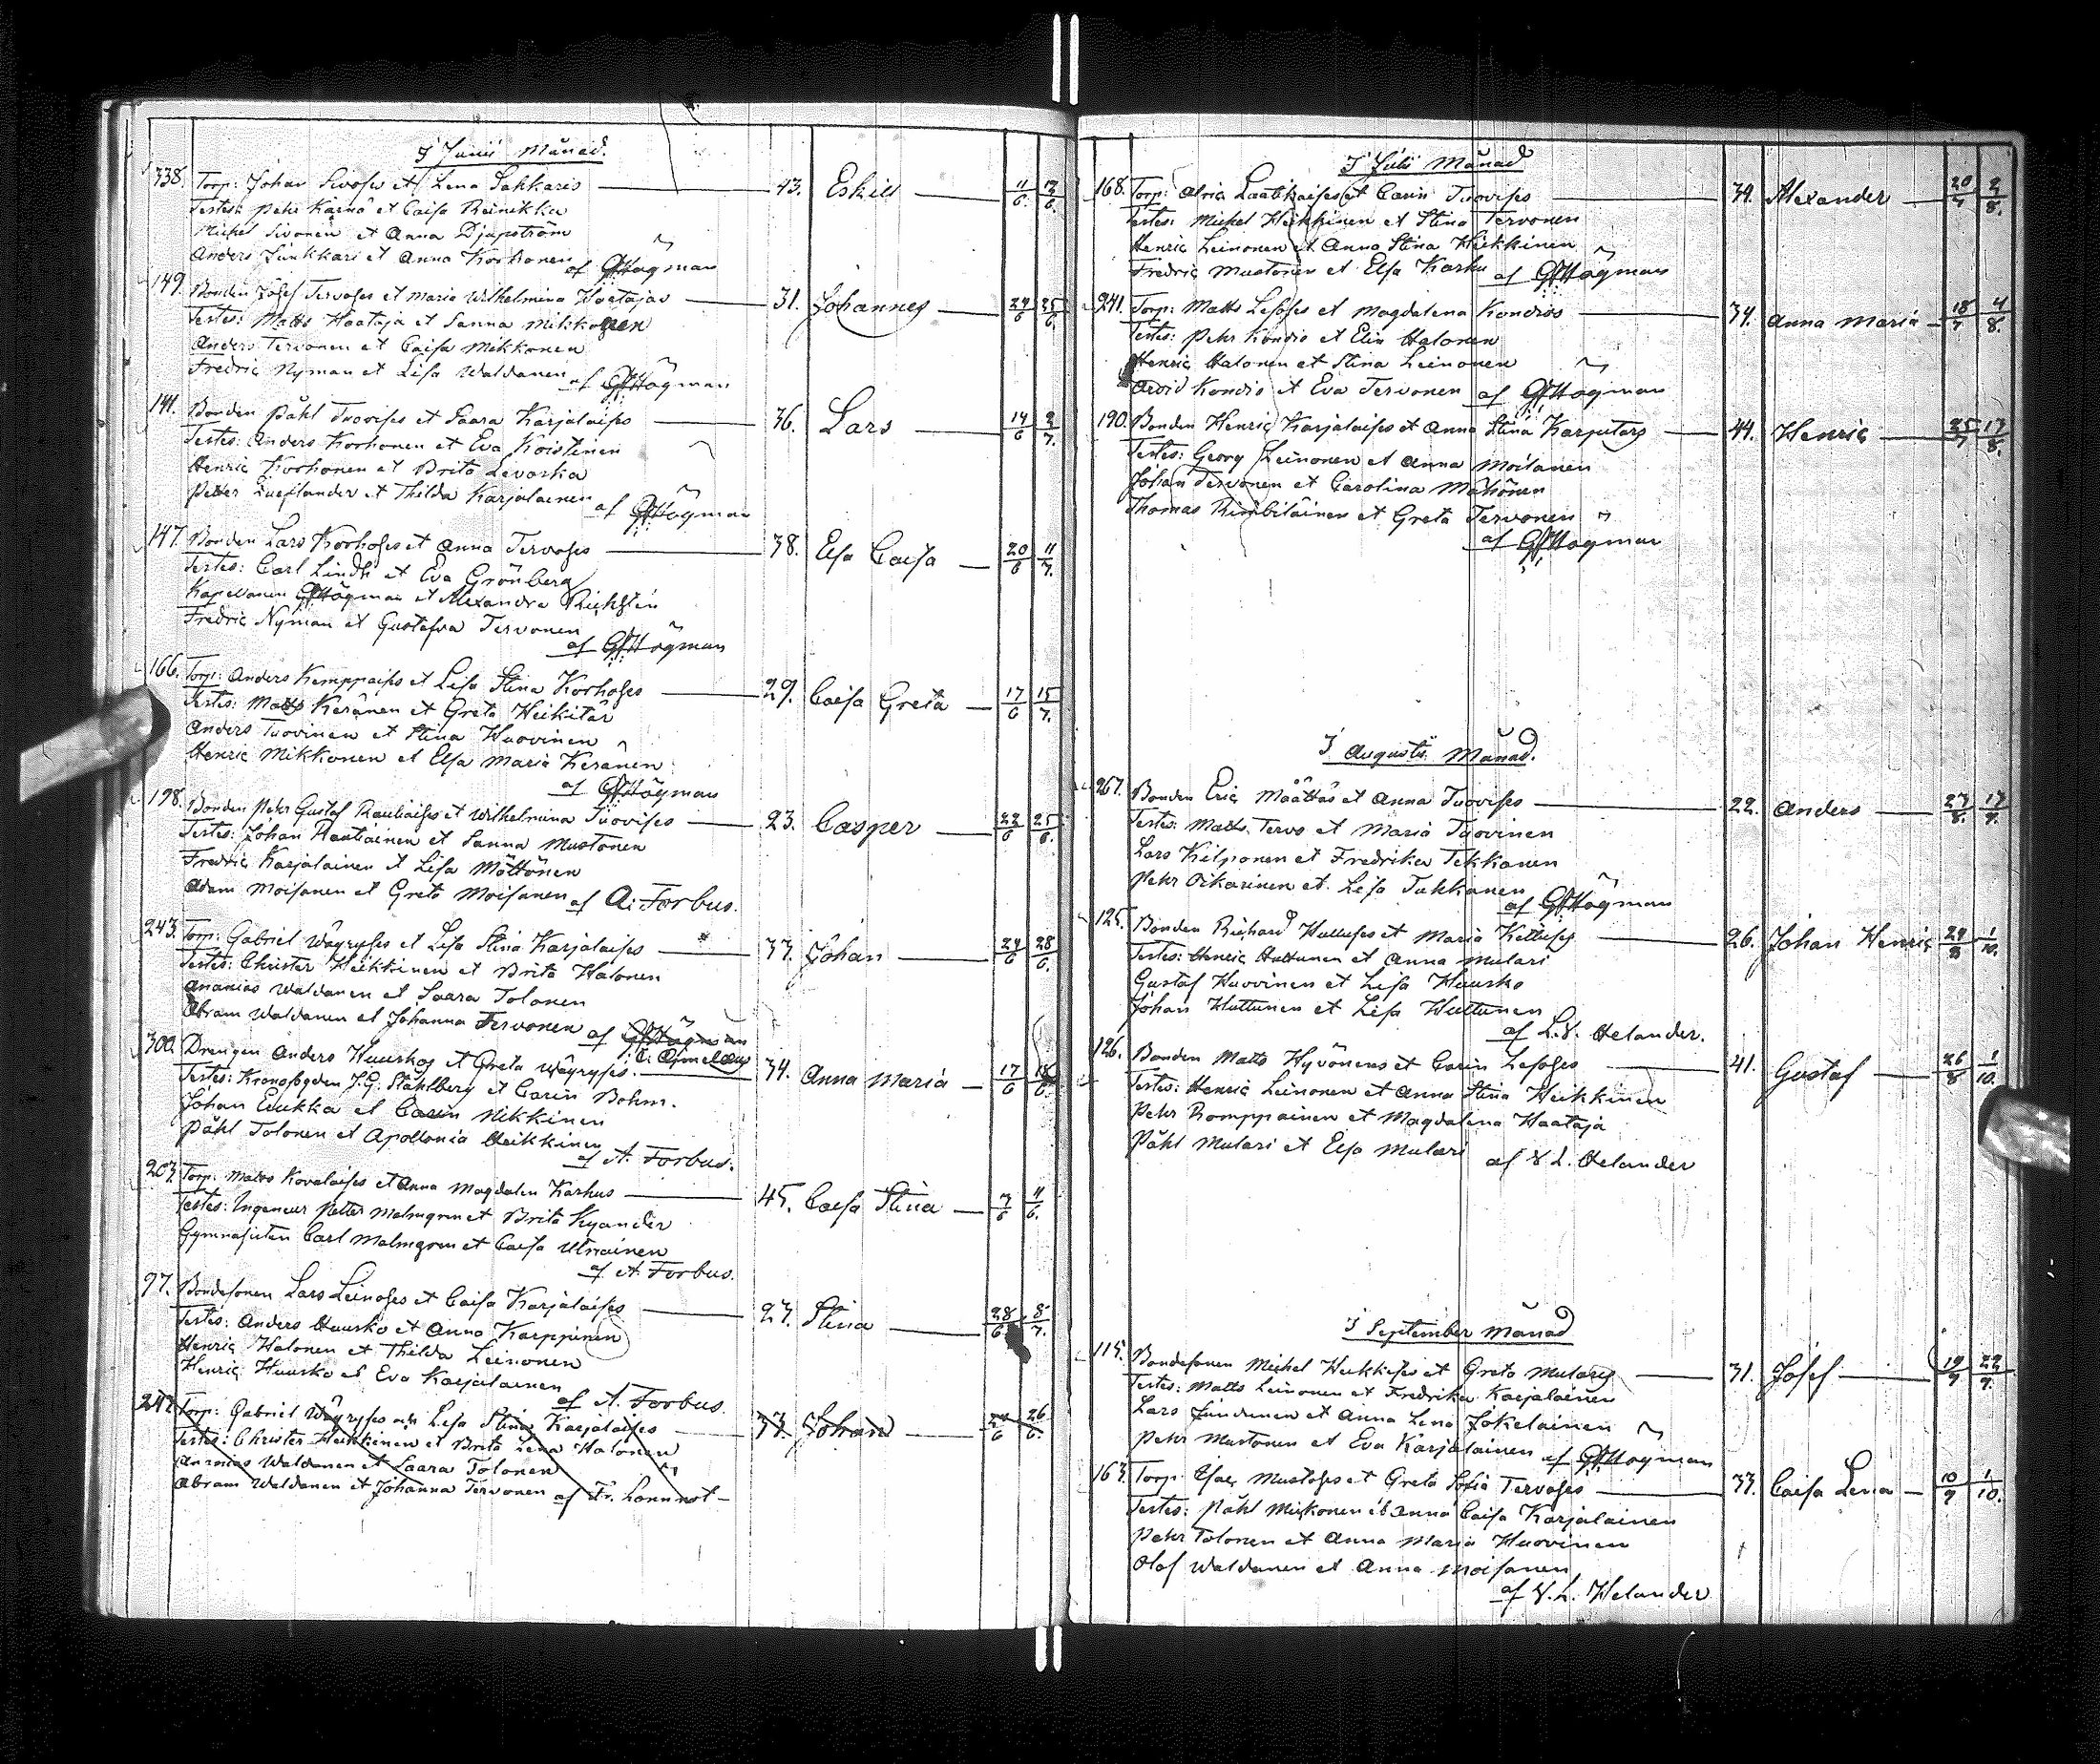 I Junii Månad.
338. Torp: Johan Sivoses et Lena Sakkaris 43. Eskill 11/6 12/6.
Testes: Pehr Kärnä et Caisa Reinikka
Michel Sivonen et Anna Djupström
Anders Sinkkari et Anna Korhonen af GfHögman
149. Bonden Josef Tervoses et Maria Wilhelmina Haatajas 31. Johannes 24/6 25/6.
Testes: Matts Haataja et Sanna Mikkonen
Anders Tervonen et Caisa Mikkonen
Fredric Nyman et Lisa Waldanen af GfHögman
141. Bonden Påhl Tuovises et Saara Karjalaises 36. Lars 14/6 2/7.
Testes: Anders Korhonen et Eva Koistinen
Henric Korhonen et Brita Levoska
Petter et Thilda Karjalainen af GfHögman
147. Bonden Lars Korhoses et Anna Tervoses 38. Elsa Caisa 20/6 11/7.
Testes: Carl Lindh et Eva Grönberg
Kapellanen GfHögman et Alexandra
Fredric Nyman et Gustafva Tervonen
af GfHögman
166. Torp: Anders Kemppaises et Lisa Stina Korhoses 29. Caisa Greta 17/6 15/7.
Testes: Matts Keränen et Greta Heikitär
Anders Tuovinen et Stina Huovinen
Henric Mikkonen et Elsa Maria Keränen
af GfHögman
198. Bonden Pehr Gustaf Rautiaises et Wilhelmina Tuovises 23. Casper 22/6 25/6.
Testes: Johan Rautiainen et Sanna Mustonen
Fredric Karjalainen et Lisa Möttönen
Adam Moisanen et Greta Moisanen af A: Forbus.
243. Torp: Gabriel Wäyryses et Lisa Stina Karjalaises 37. Johan 24/6 28/6.
Testes: Christer Heikkinen et Brita Halonen
Ananias Waldanen et Saara Tolonen
Abram Waldanen et Johanna Tervonen af GfHögman
300. Drengen Anders Huuskos et Greta Wäyryses. 34. Anna Maria 17/6
Testes: Kronofogden J. G. Ståhlberg et Carin Bohm.
Johan Eukka et Carin Nikkinen
Påhl Tolonen et Apollonia Heikkinen
af A. Forbus.
207. Torp: Matts Kovalaises et Anna Magdalen Karhus 45. Caisa Stina 7/6 11/6.
Testes: Ingeneur Petter Malmgren et Brita Kyander
Gymnasisten Carl Malmgren et Caisa
af A. Forbus.
97. Bondesonen Lars Leinoses et Caisa Karjalaises 27. Stina 28/6 8/7.
Testes: Anders Huusko et Anna Karppinen
Henric Halonen et Thilda Leinonen
Henric Huusko et Eva Karjalainen
af A. Forbus.
Torp: Gabriel Wäyryses och Lisa Stina Karjalaises 37. Johan 24/6 26/6.
Testes: Christer Heikkinen et Brita Lena Halonen
Ananias Waldanen et Saara Tolonen
Abram Waldanen et Johanna Tervonen af Fr. Lönnrot
I Julii Månad
168. Torp: Alric Laatikaises et Carin Tuovises 39. Alexander 20/7 2/8.
Testes: Michel Heikkinen et Stina Tervonen
Henric Leinonen et Anna Stina Heikkinen
Fredric Mustonen et Elsa Karhu af GfHögman
241. Torp: Matts Lesoses et Magdalena Kondios 34. Anna Maria 18/7 4/8.
Testes: Pehr Kondio et Elin Halonen
Henric Halonen et Stina Leinonen
Arvid Kondio et Eva Tervonen af GfHögman
190. Bonden Henric Karjalaises et Anna Stina Karputars 44. Henric 25/7 17/8.
Testes: Georg Leinonen et Anna Moilanen
Johan Tervonen et Carolina Mähönen
Thomas Rimbiläinen et Greta Tervonen
af GfHögman
I Augusti Månad.
267. Bonden Eric Määttäs et Anna Tuovises 22. Anders 27/8. 17/9.
Testes: Matts Tervo et Maria Tuovinen
Lars Kilponen et Fredrika Tekkanen
Pehr Oikarinen et Lisa Tukkanen
af GfHögman
125. Bonden Richard Hulluses et Maria Kelluses 26. Johan Henric 29/8 1/10.
Testes: Henric Huttunen et Anna Mulari
Gustaf Huovinen et Lisa Huusko
Johan Huttunen et Lisa Huttunen
af L. V. Helander.
126. Bonden Matts Hyvönens et Carin Lesoses 41. Gustaf 26/8 1/10.
Testes: Henric Leinonen et Anna Stina Heikkinen
Pehr Romppainen et Magdalena Haataja
Påhl Mulari et Elsa Mulari af V. L. Helander
I September Månad
115. Bondesonen Michel Heikkises et Greta Mularis 31. Josef 19/9 22/9.
Testes: Matts Leinonen et Fredrika Karjalainen
Lars Jundunen et Anna Lena Jokelainen
Pehr Mustonen et Eva Karjalainen af GfHögman
163. Torp: Isac Mustoses et Greta Sofia Tervoses 33. Caisa Lena 10/9 1/10.
Testes: Påhl Mikkonen et Anna Caisa Karjalainen
Pehr Tolonen et Anna Maria Huovinen
Olof Waldanen et Anna Moisanen
af V. L. Helander